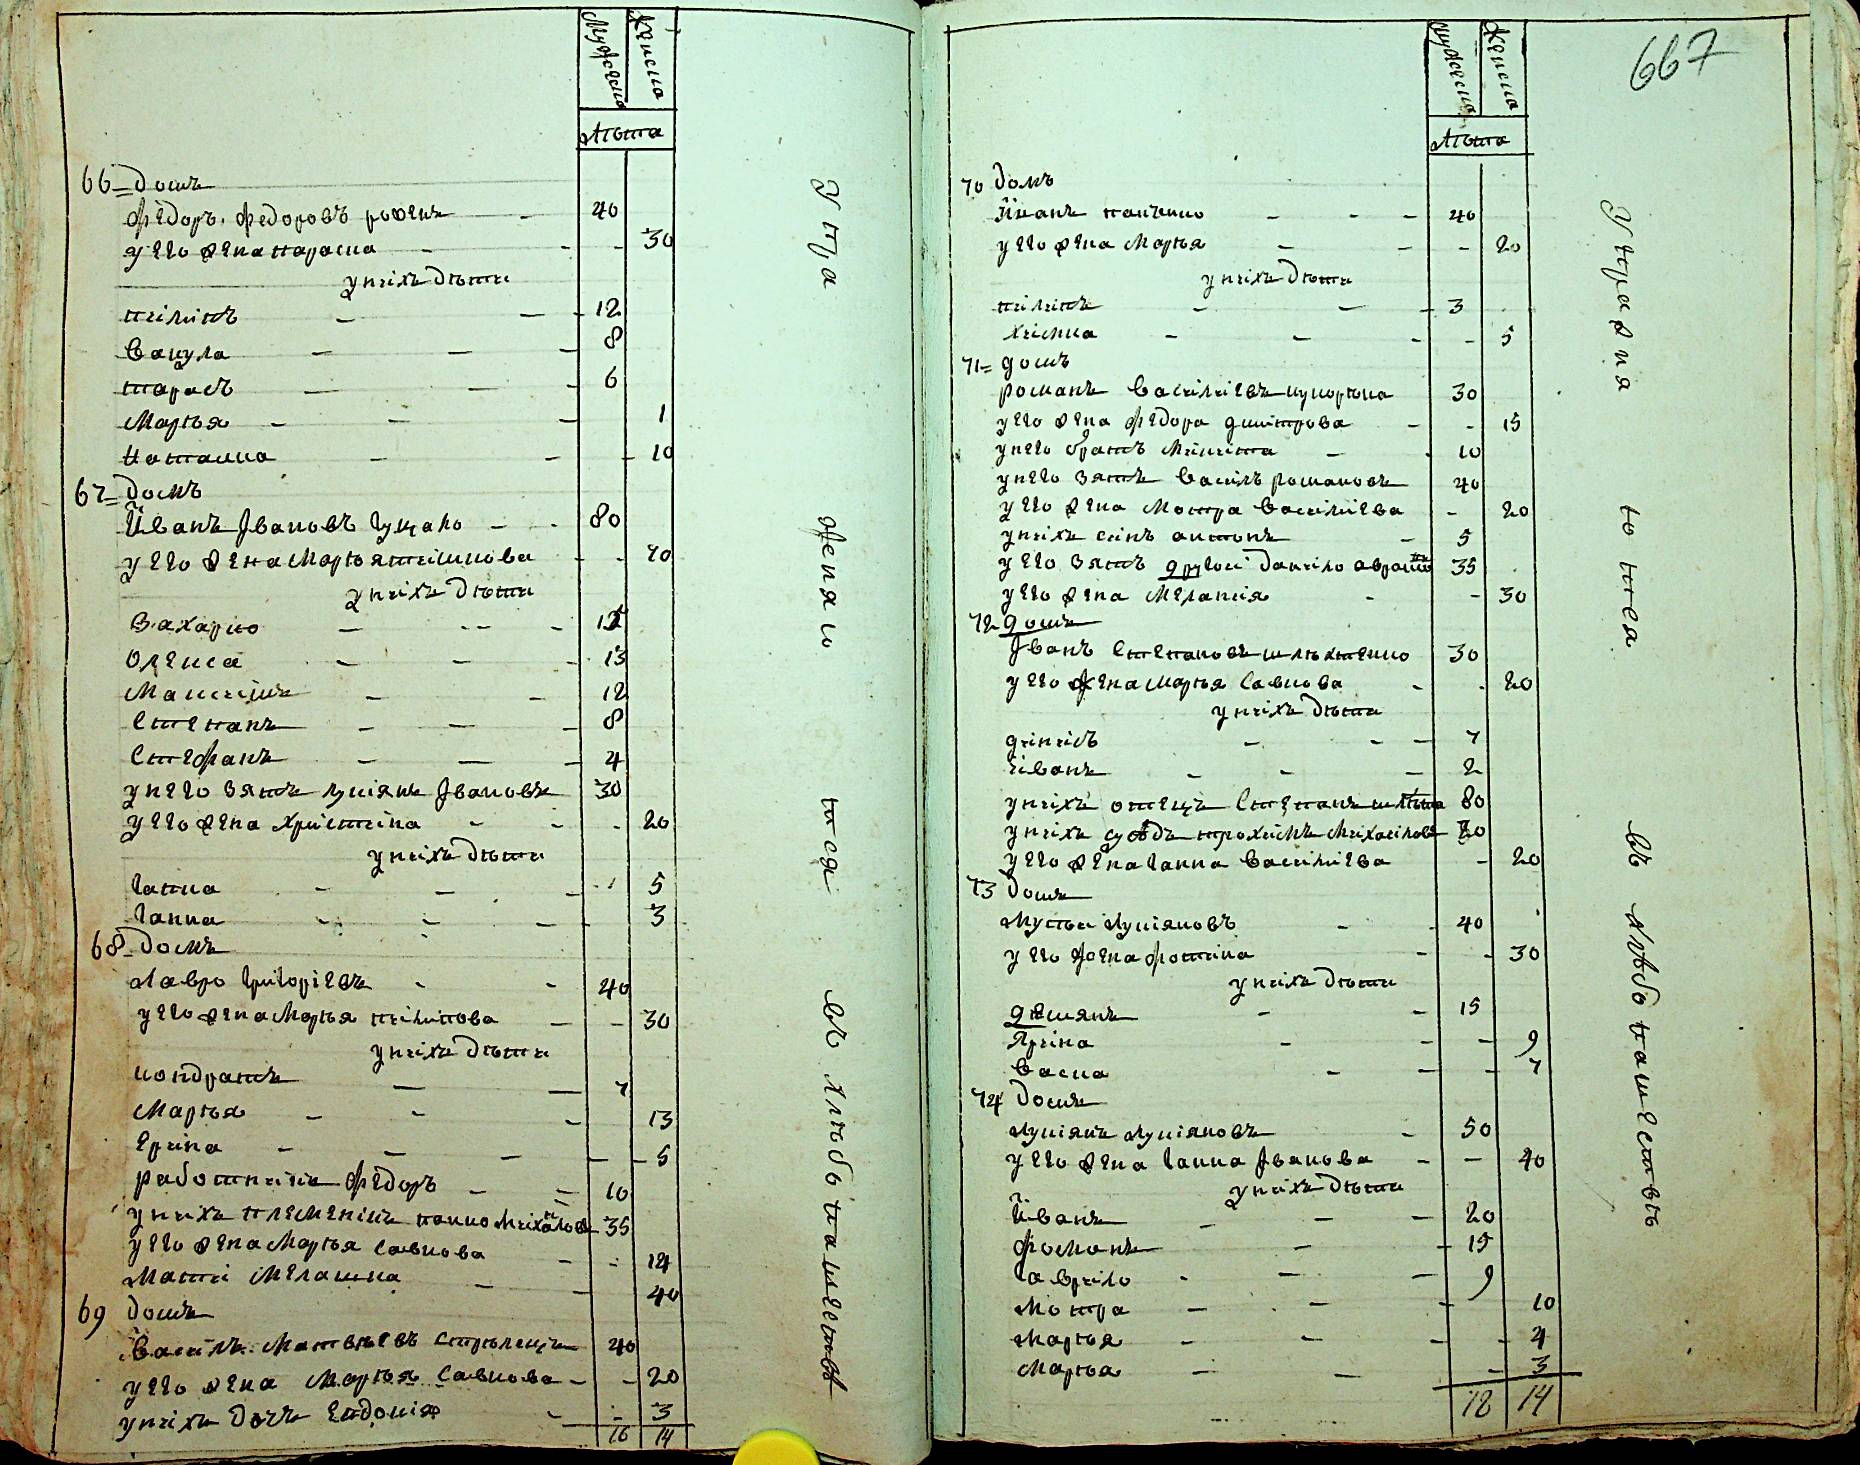 Мужеска
Женска
лѣта
66 домъ
Федоръ Федоровъ 40
у его жена Параска 30
у нихъ дѣти
Пилипъ 12
Вакула 8
Тарасъ 6
Марья 1
Наталка 10
67 домъ
Иванъ Івановъ 80
у его жена Марья 70
у нихъ дѣти
Захарко
Олекса 13
Максимъ 12
Степанъ 8
Стефанъ 4
у него зять Лукіянъ Івановъ 30
у его жена Христина 20
у нихъ дѣти
Гапка 5
Ганна 3
68 домъ
Лавро Григоріевъ 40
у его жена Марья Пилипова 30
у нихъ дѣти
Кондратъ 7
Марья 13
Ерина 5
работникъ Федоръ 10
у нихъ племенікъ Панко Михайловъ 35
у его жена Марья Савкова
Мати Мелашка 40
69 домъ
Василь Матвѣевъ Стрѣлецъ 40
у его жена Марья Савкова 20
у нихъ дочь Евдокія 3
16 14
Упражняются въ хлѣбопашествѣ
667
Мужеска
Женска
лѣта
70 домъ
Иванъ Панченко 40
у его жена Марья 20
у нихъ дѣти
Пилипъ 3
Химка 5
71 домъ
Романъ Василіевъ 30
у его жена Федора Дмитрова 15
у него братъ Микита 10
у него зять Василь Романовъ 40
у его жена Мотра Василіева 20
у нихъ синъ Антонъ 5
у его зять другой Данило 35
у его жена Меланія 30
72 домъ
Іванъ Степановъ 30
у его жена Марья Савкова 20
у нихъ дѣти
Динисъ 7
Иванъ 2
у нихъ отецъ Степанъ 80
у нихъ сусѣдъ Трохимъ Михайловъ
у его жена Ганна Василіева 20
73 домъ
Лукіяновъ 40
у его жена 30
у нихъ дѣти
Демянъ 15
Ярина 9
Васка 7
74 домъ
Лукіянъ Лукіяновъ 50
у его жена Ганна Іванова 40
у нихъ дѣти
Иванъ 20
15
Гаврило 9
Мотра 10
Марья 4
Марья 3
18 14
Упражняются въ хлѣбопашествѣ